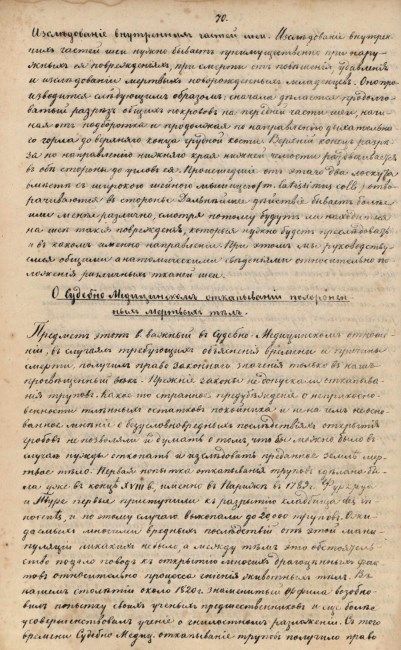 70.
Изслѣдованіе внутреннихъ частей шеи. Изслѣдованіе внутрен-
нихъ частей шеи нужно бываетъ преимущественно при наруж-
ныхъ ея поврежденіяхъ, при смерти отъ повѣшенія, удавленія
и изслѣдованіи мертвыхъ новорожденныхъ младенцевъ. Оно про-
изводится слѣдующимъ образомъ: сначала дѣлается продолго-
ватый разрѣзъ общихъ покрововъ на передней части шеи, начи-
ная отъ подбородка и продолжая по направленію дыхательна-
го горла до верхняго конца грудной кости. Верхній конецъ разрѣ-
за по направленію нижняго края нижней челюсти раздваивается
въ обѣ стороны до угловъ ея. Происшедшіе отъ этого два лоскута
вмѣстѣ съ широкою шейною мышцею m. latissimus colli, отво-
рачиваются въ стороны. Дальнѣйшія дѣйствія бываютъ болѣе
или менѣе различно, смотря потому будутъ ли находиться
на шеѣ такія поврежденія, которыя нужно будетъ преслѣдовать
и въ какомъ именно направленіи. При этомъ мы руководству-
емся общими анатомическими свѣденіями относительно по-
ложенія различныхъ тканей шеи.
О Судебно Медицинскомъ откапываніи похоронен-
ныхъ мертвыхъ тѣлъ.
Предметъ этотъ важный въ Судебно-Медицинскомъ отноше-
ніи, въ случаяхъ требующихъ объясненія времени и причины
смерти получилъ право законнаго значенія только въ нашъ
просвѣщенный вѣкъ. Прежніе законы недопускали откапыва-
нія труповъ. Какое то странное предубѣжденіе о неприкосно-
венности тлѣнныхъ остатковъ покойника и ни на чемъ неосно-
ванное мнѣніе о безусловновредныхъ послѣдствіяхъ открытія
гробовъ не позволяли и думать о томъ, что бы можно было въ
случаѣ нужды откопать и изслѣдовать преданное землѣ мерт-
вое тѣло. Первая попытка откапыванія труповъ сдѣлана бы-
ла уже въ концѣ XVIII в. именно въ Парижѣ въ 178 г. Фуркруа
и Туре первые приступили къ разрытію кладбища des in-
nocents, и по этому случаю выкопали до 20000 труповъ. Ожи-
даемыхъ многими вредныхъ послѣдствій отъ этой мани-
пуляціи никакихъ небыло, а между тѣмъ это обстоятель-
ство подало поводъ къ открытію многихъ драгоцѣнныхъ фак-
товъ относительно процесса гніенія животныхъ тѣлъ. Въ
нашемъ столѣтіи около 1820 г. знаменитый Орфила возобно-
вилъ попытку своихъ ученыхъ предшественниковъ и еще болѣе
усовершенствовалъ ученіе о гнилостномъ разложеніи. Съ того
времени Судебно Медиц. откапываніе труповъ получило право